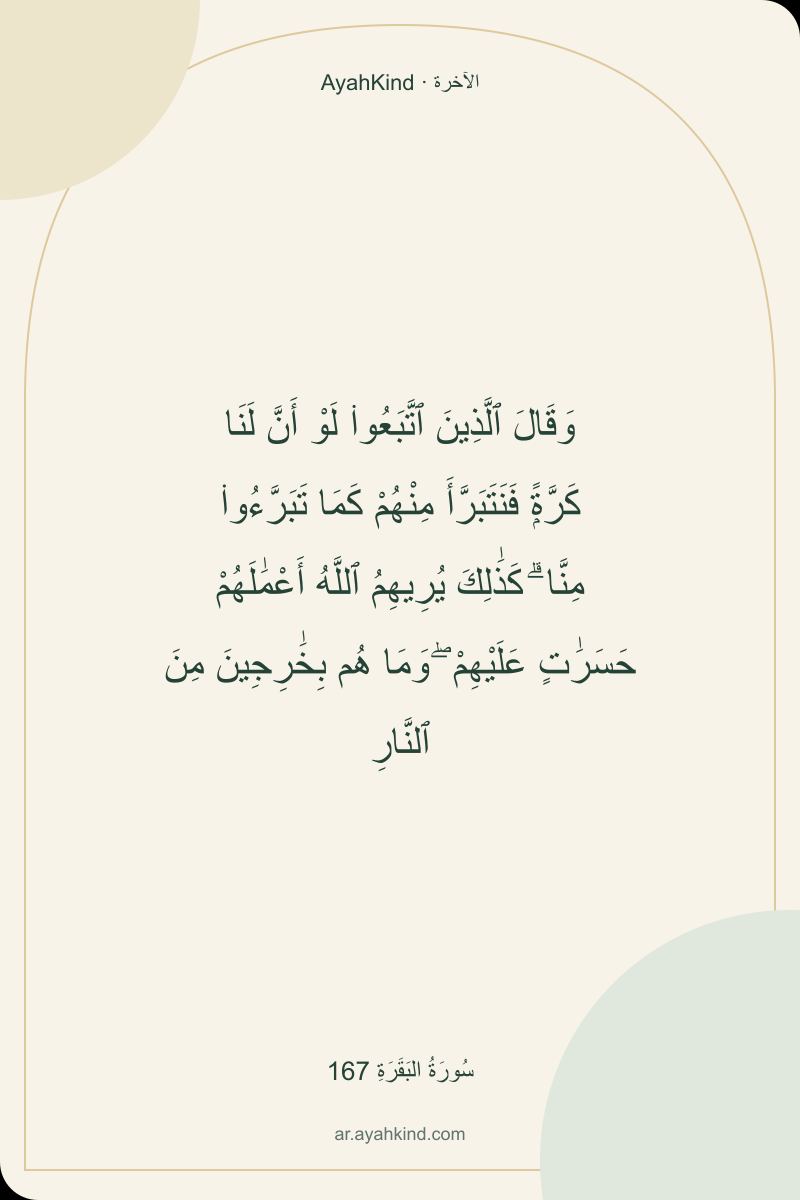 AyahKind · الآخرة
وَقَالَ ٱلَّذِينَ ٱتَّبَعُوا۟ لَوْ أَنَّ لَنَا
كَرَّةًۭ فَنَتَبَرَّأَ مِنْهُمْ كَمَا تَبَرَّءُوا۟
مِنَّا ۗ كَذَٰلِكَ يُرِيهِمُ ٱللَّهُ أَعْمَٰلَهُمْ
حَسَرَٰتٍ عَلَيْهِمْ ۖ وَمَا هُم بِخَٰرِجِينَ مِنَ
ٱلنَّارِ
سُورَةُ البَقَرَةِ 167
ar.ayahkind.com